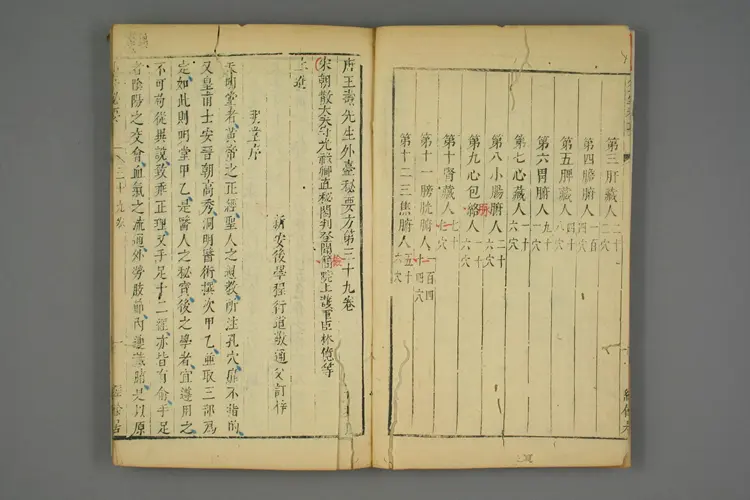 第三肝藏人二十二穴
第四膽腑人一百四穴
第五脾藏人四十八穴
第六胃腑人九十一穴
第七心藏人一十六穴
第八小腸腑人二十六穴
第九心包絡人一十六穴
第十腎藏人七十七穴
第十一膀胱腑人一百四十四穴
第十二三焦腑人五十六穴
唐王燾先生外臺秘要方第三十九卷
宋朝散大夫守光祿卿直秘閣判登聞醫院上護軍臣林億等
上進
新安後學程行道敬通父訂梓
明堂序
夫明堂者黃帝之正經聖人之遺教所注孔穴靡不指的
又皇甫士安晉朝高秀洞明醫術撰次甲乙並取三部為
定如此則明堂甲乙是醫人之秘寶後之學者宜遵用之
不可苟從異說致乖正理又手足十二經亦皆有俞手足
者陰陽之交會血氣之流通外勞肢節內連藏腑是以原
三十九卷
經餘居